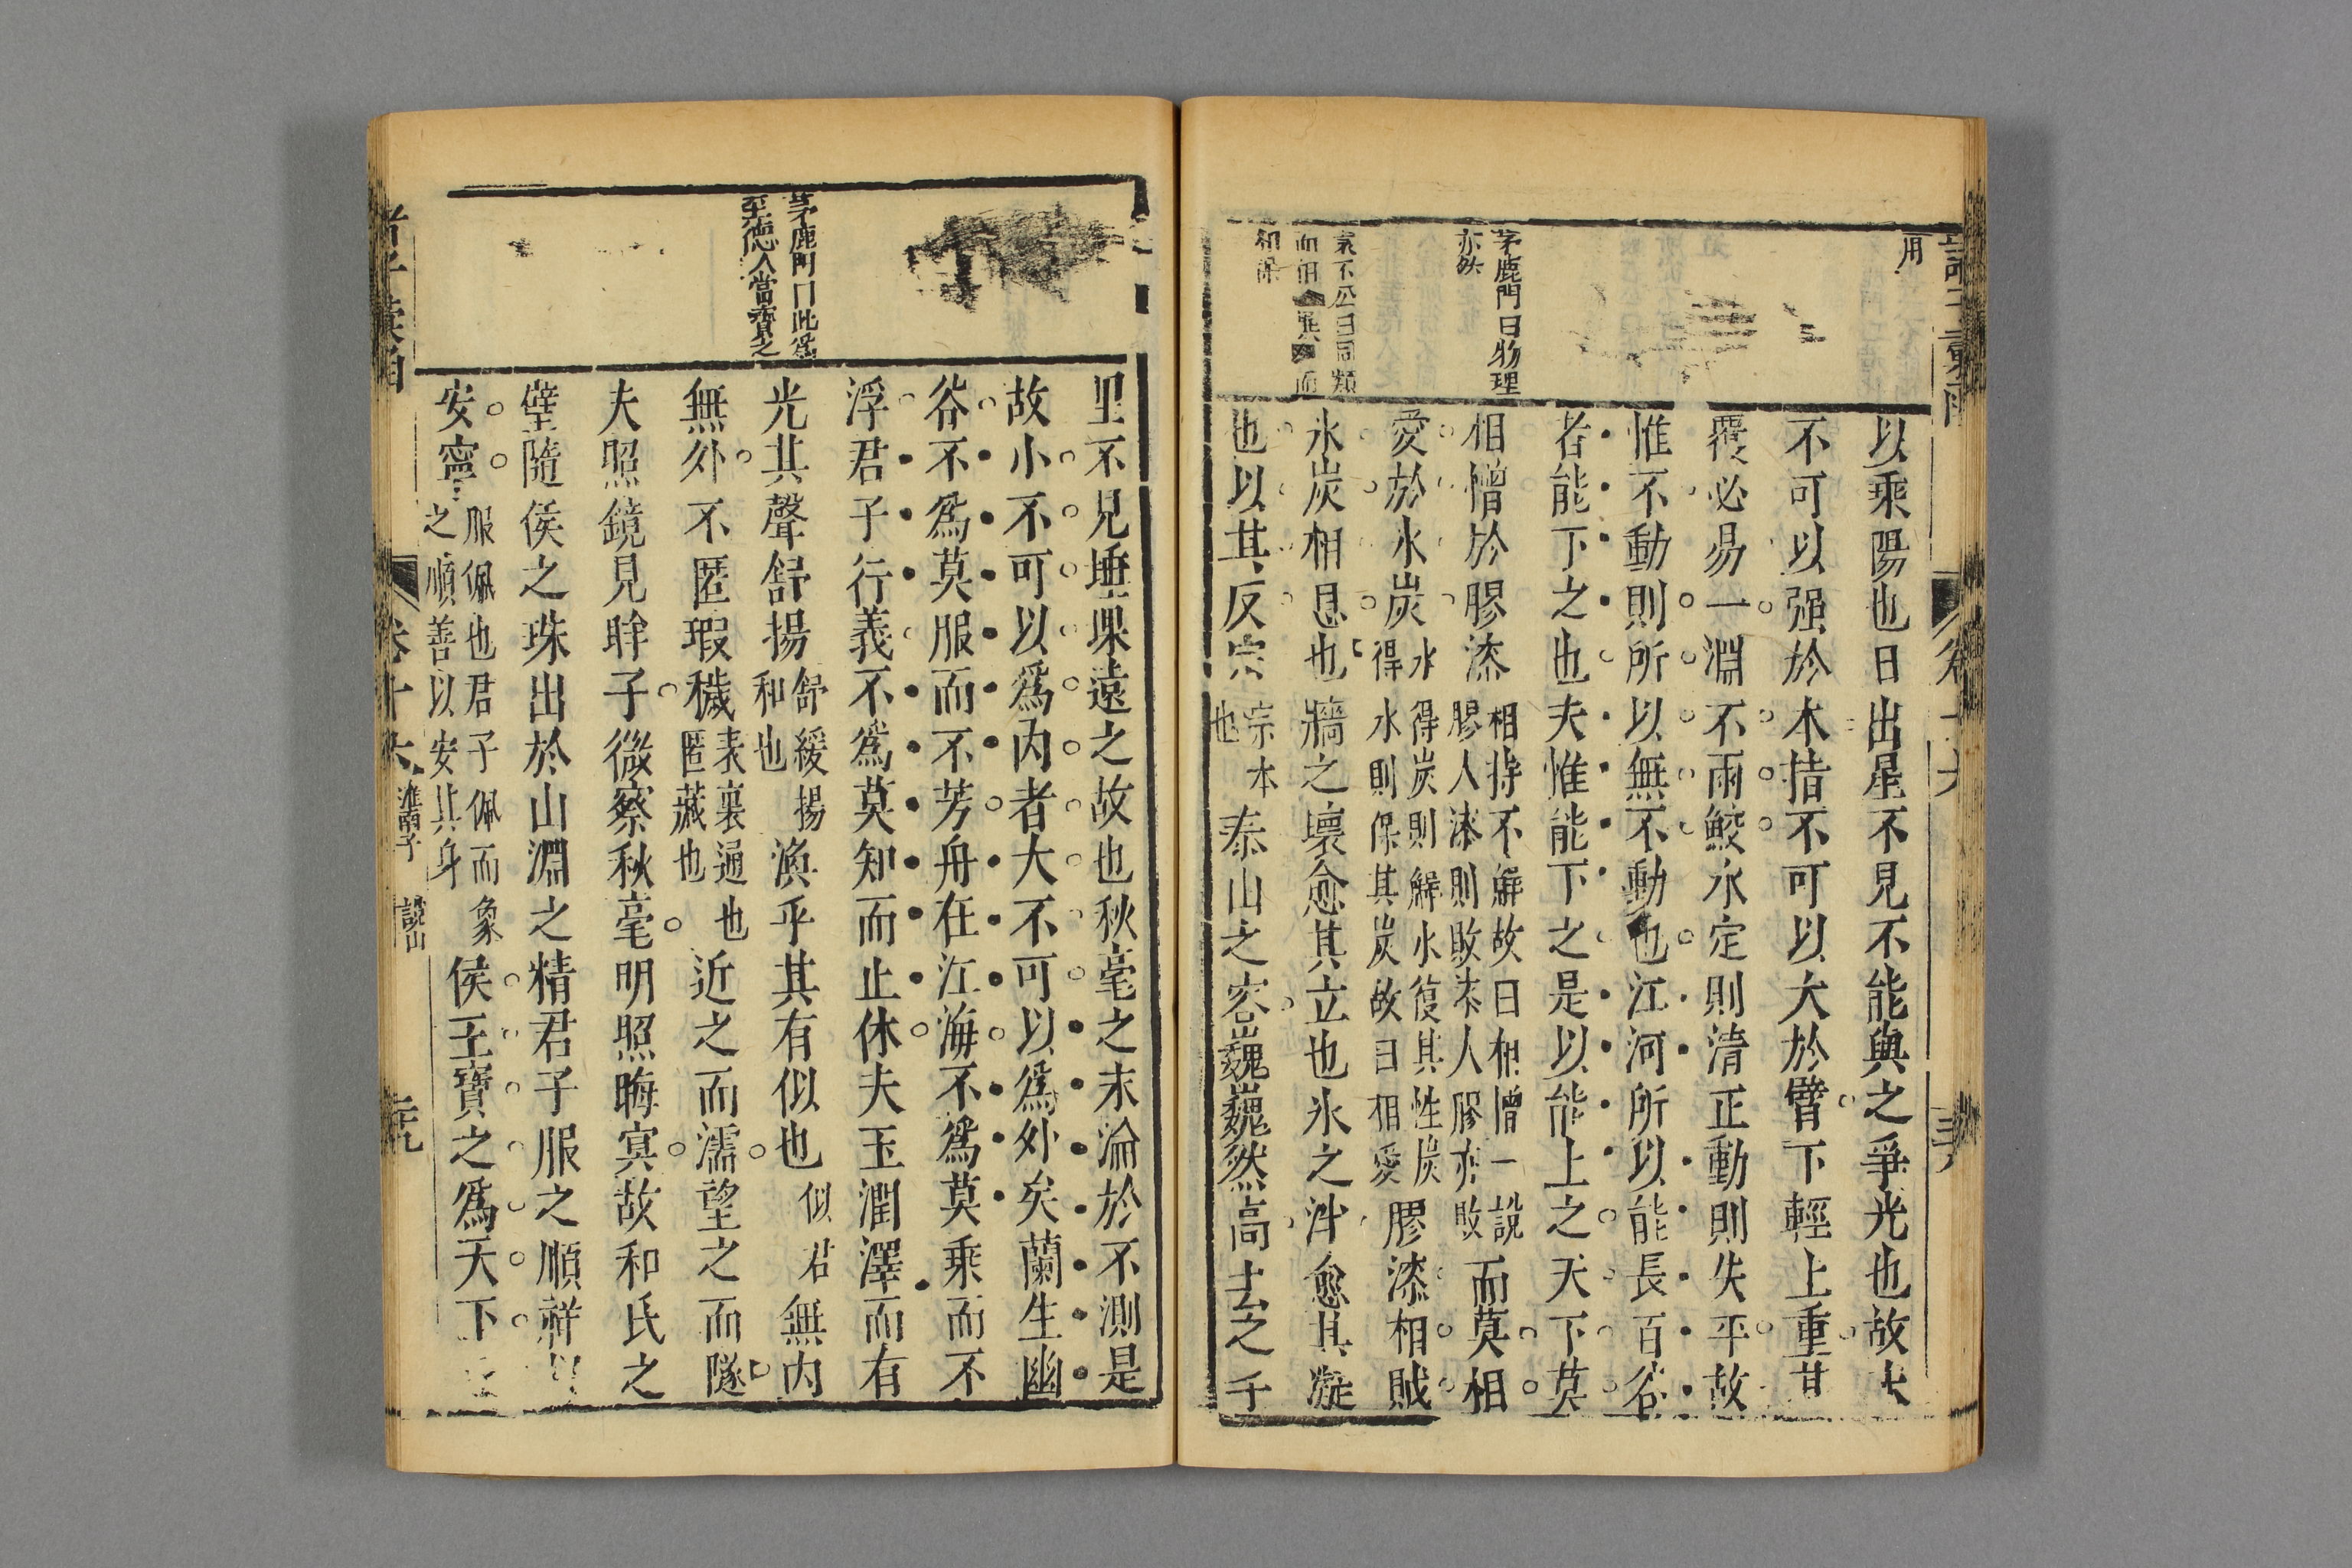 用
茅鹿門曰物理
亦然
袁不公曰同類
以乘陽也日出星不見不能與之爭光也故夫
不可以强於木指不可以大於臂下輕上重其
覆必易一淵不兩鮫水定則清正動則失平故
惟不動則所以無不動也江河所以能長百谷
者能下之也夫惟能下之是以能上之天下莫
相憎於膠漆相持不解故曰相憎一說膠人漆則敗漆人膠亦敗而莫相
愛於氷炭氷得炭則解水復其性炭得水則保其炭故曰相愛膠漆相賊
氷炭相息也牆之壞愈其立也氷之泮愈其凝
也以其反宗宗本也泰山之容巍巍然高去之千
茅鹿門曰此爲
至德人當寶之
里不見埵堁遠之故也秋毫之末淪於不測是
故小不可以爲內者大不可以爲外矣蘭生幽
谷不爲莫服而不芳舟在江海不爲莫乘而不
浮君子行義不爲莫知而止休夫玉潤澤而有
光其聲舒揚舒緩揚和也渙乎其有似也似君無內
無外不匿瑕穢表裏通也匿藏也近之而濡望之而隧
夫照鏡見眸子微察秋毫明照晦冥故和氏之
璧隨侯之珠出於山淵之精君子服之順祥以
安寧服佩也君子佩而象之順善以安其身侯王寶之爲天下
卷十六 淮南子 說山